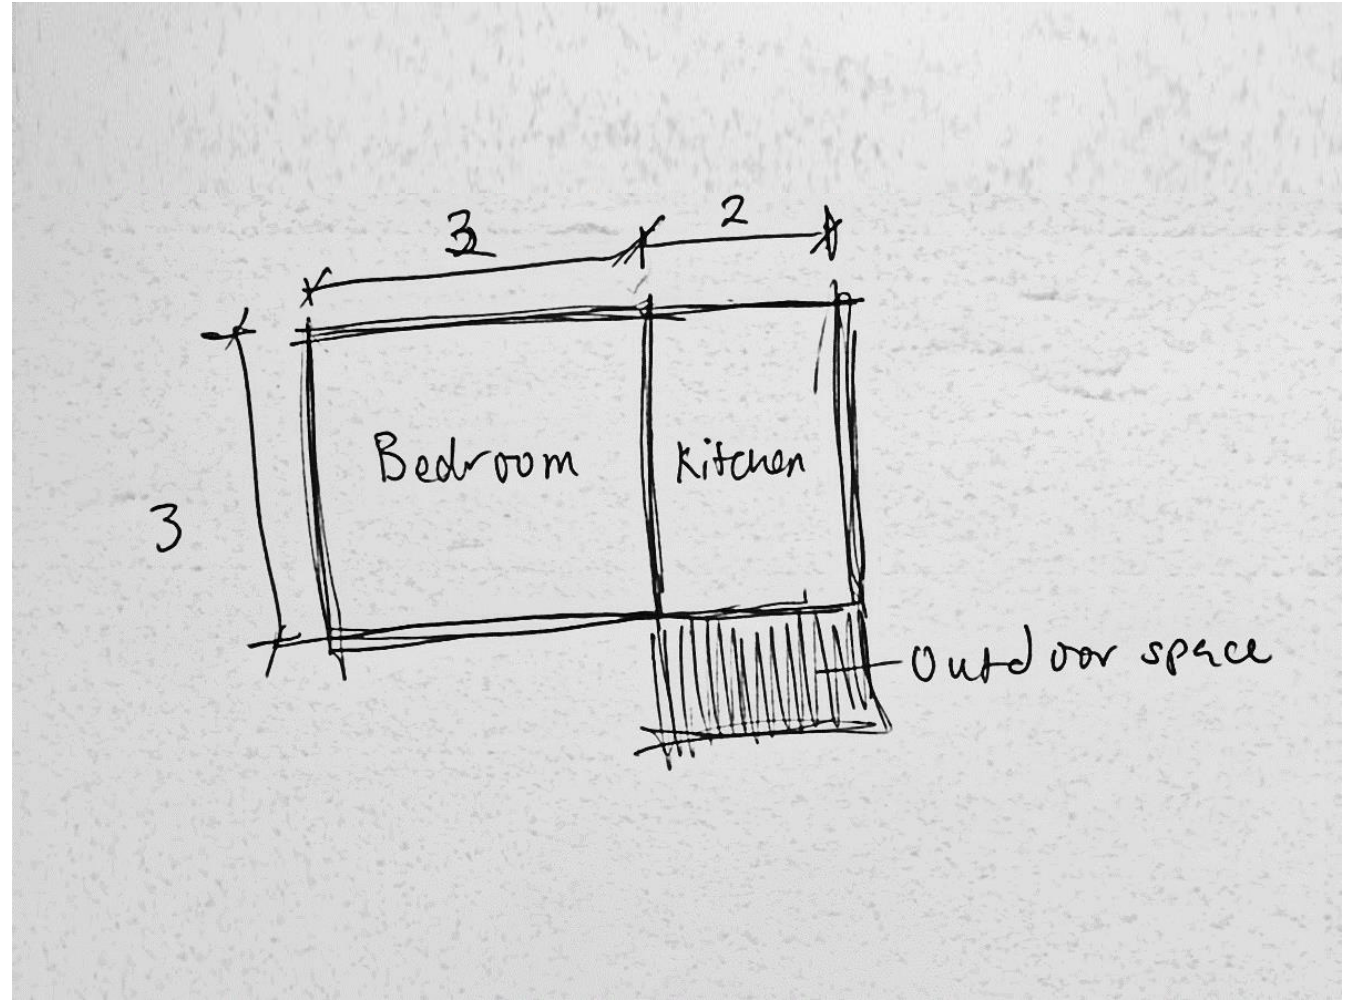 3
2
3
Bedroom
Kitchen
Outdoor space